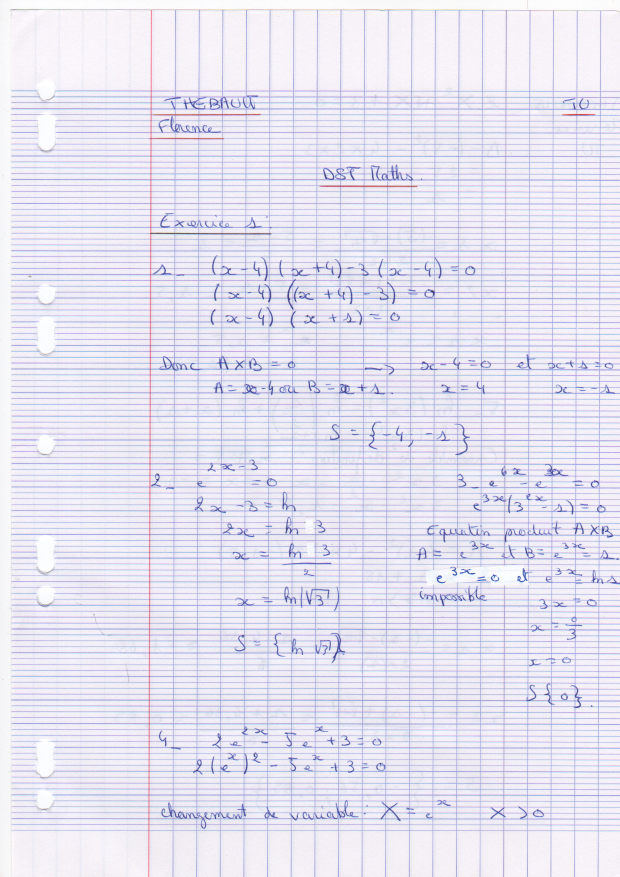 THEBAULT TU
Florence
DST Maths.
Exercice 1:
1_ (x-4)(x+4)-3(x-4)=0
(x-4)((x+4)-3)=0
(x-4)(x+1)=0
Donc A×B=0 → x-4=0 et x+1=0
A=x-4 ou B=x+1. x=4 x=-1
S={-4,-1}
2_ e^{2x-3}=0
2x-3=ln
2x=ln 3
x=\frac{ln 3}{2}
x=ln(√3)
S={ln √3}
3_ e^{6x}-e^{3x}=0
e^{3x}(3^{2x}-1)=0
Equation product A×B
A=e^{3x} et B=e^{3x}=1.
e^{3x}=0 et e^{3x}=ln 1
impossible 3x=0
x=\frac{0}{3}
x=0
S{0}.
4_ 2e^{2x}-5e^{x}+3=0
2(e^{x})^2-5e^{x}+3=0
changement de variable: X=e^{x} X>0